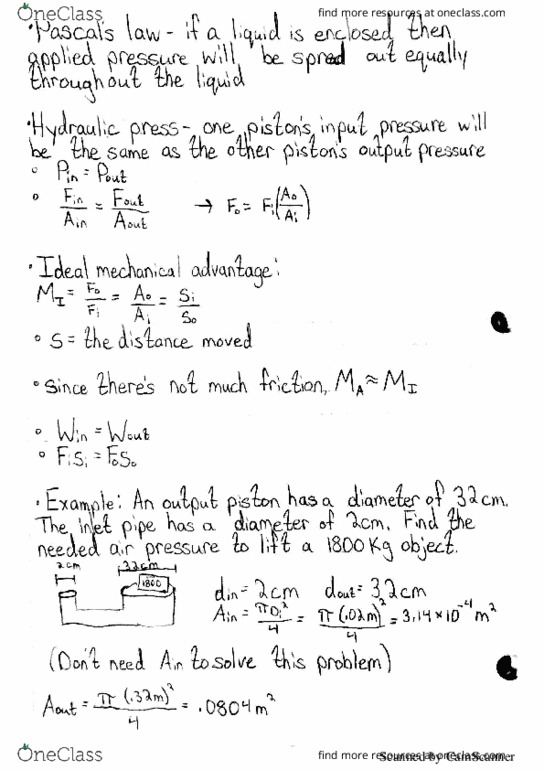 find more resources at oneclass.com
• Pascal's law - if a liquid is enclosed then
applied pressure will be spread out equally
throughout the liquid
• Hydraulic press - one piston's input pressure will
be the same as the other piston's output pressure
◦ Pin = Pout
◦ Fin/Ain = Fout/Aout → Fo = Fi(Ao/Ai)
• Ideal mechanical advantage:
MI = Fo/Fi = Ao/Ai = Si/So
◦ S = the distance moved
• Since there's not much friction, MA ≈ MI
◦ Win = Wout
◦ FiSi = FoSo
• Example: An output piston has a diameter of 32cm.
The inlet pipe has a diameter of 2cm. Find the
needed air pressure to lift a 1800 Kg object.
2cm 32cm
1800
din = 2cm dout = 32cm
Ain = πDi²/4 = π(.02m)²/4 = 3.14×10⁻⁴ m²
(Don't need Ain to solve this problem)
Aout = π(.32m)²/4 = .0804 m²
OneClass
find more resources at oneclass.com
Scanned by CamScanner